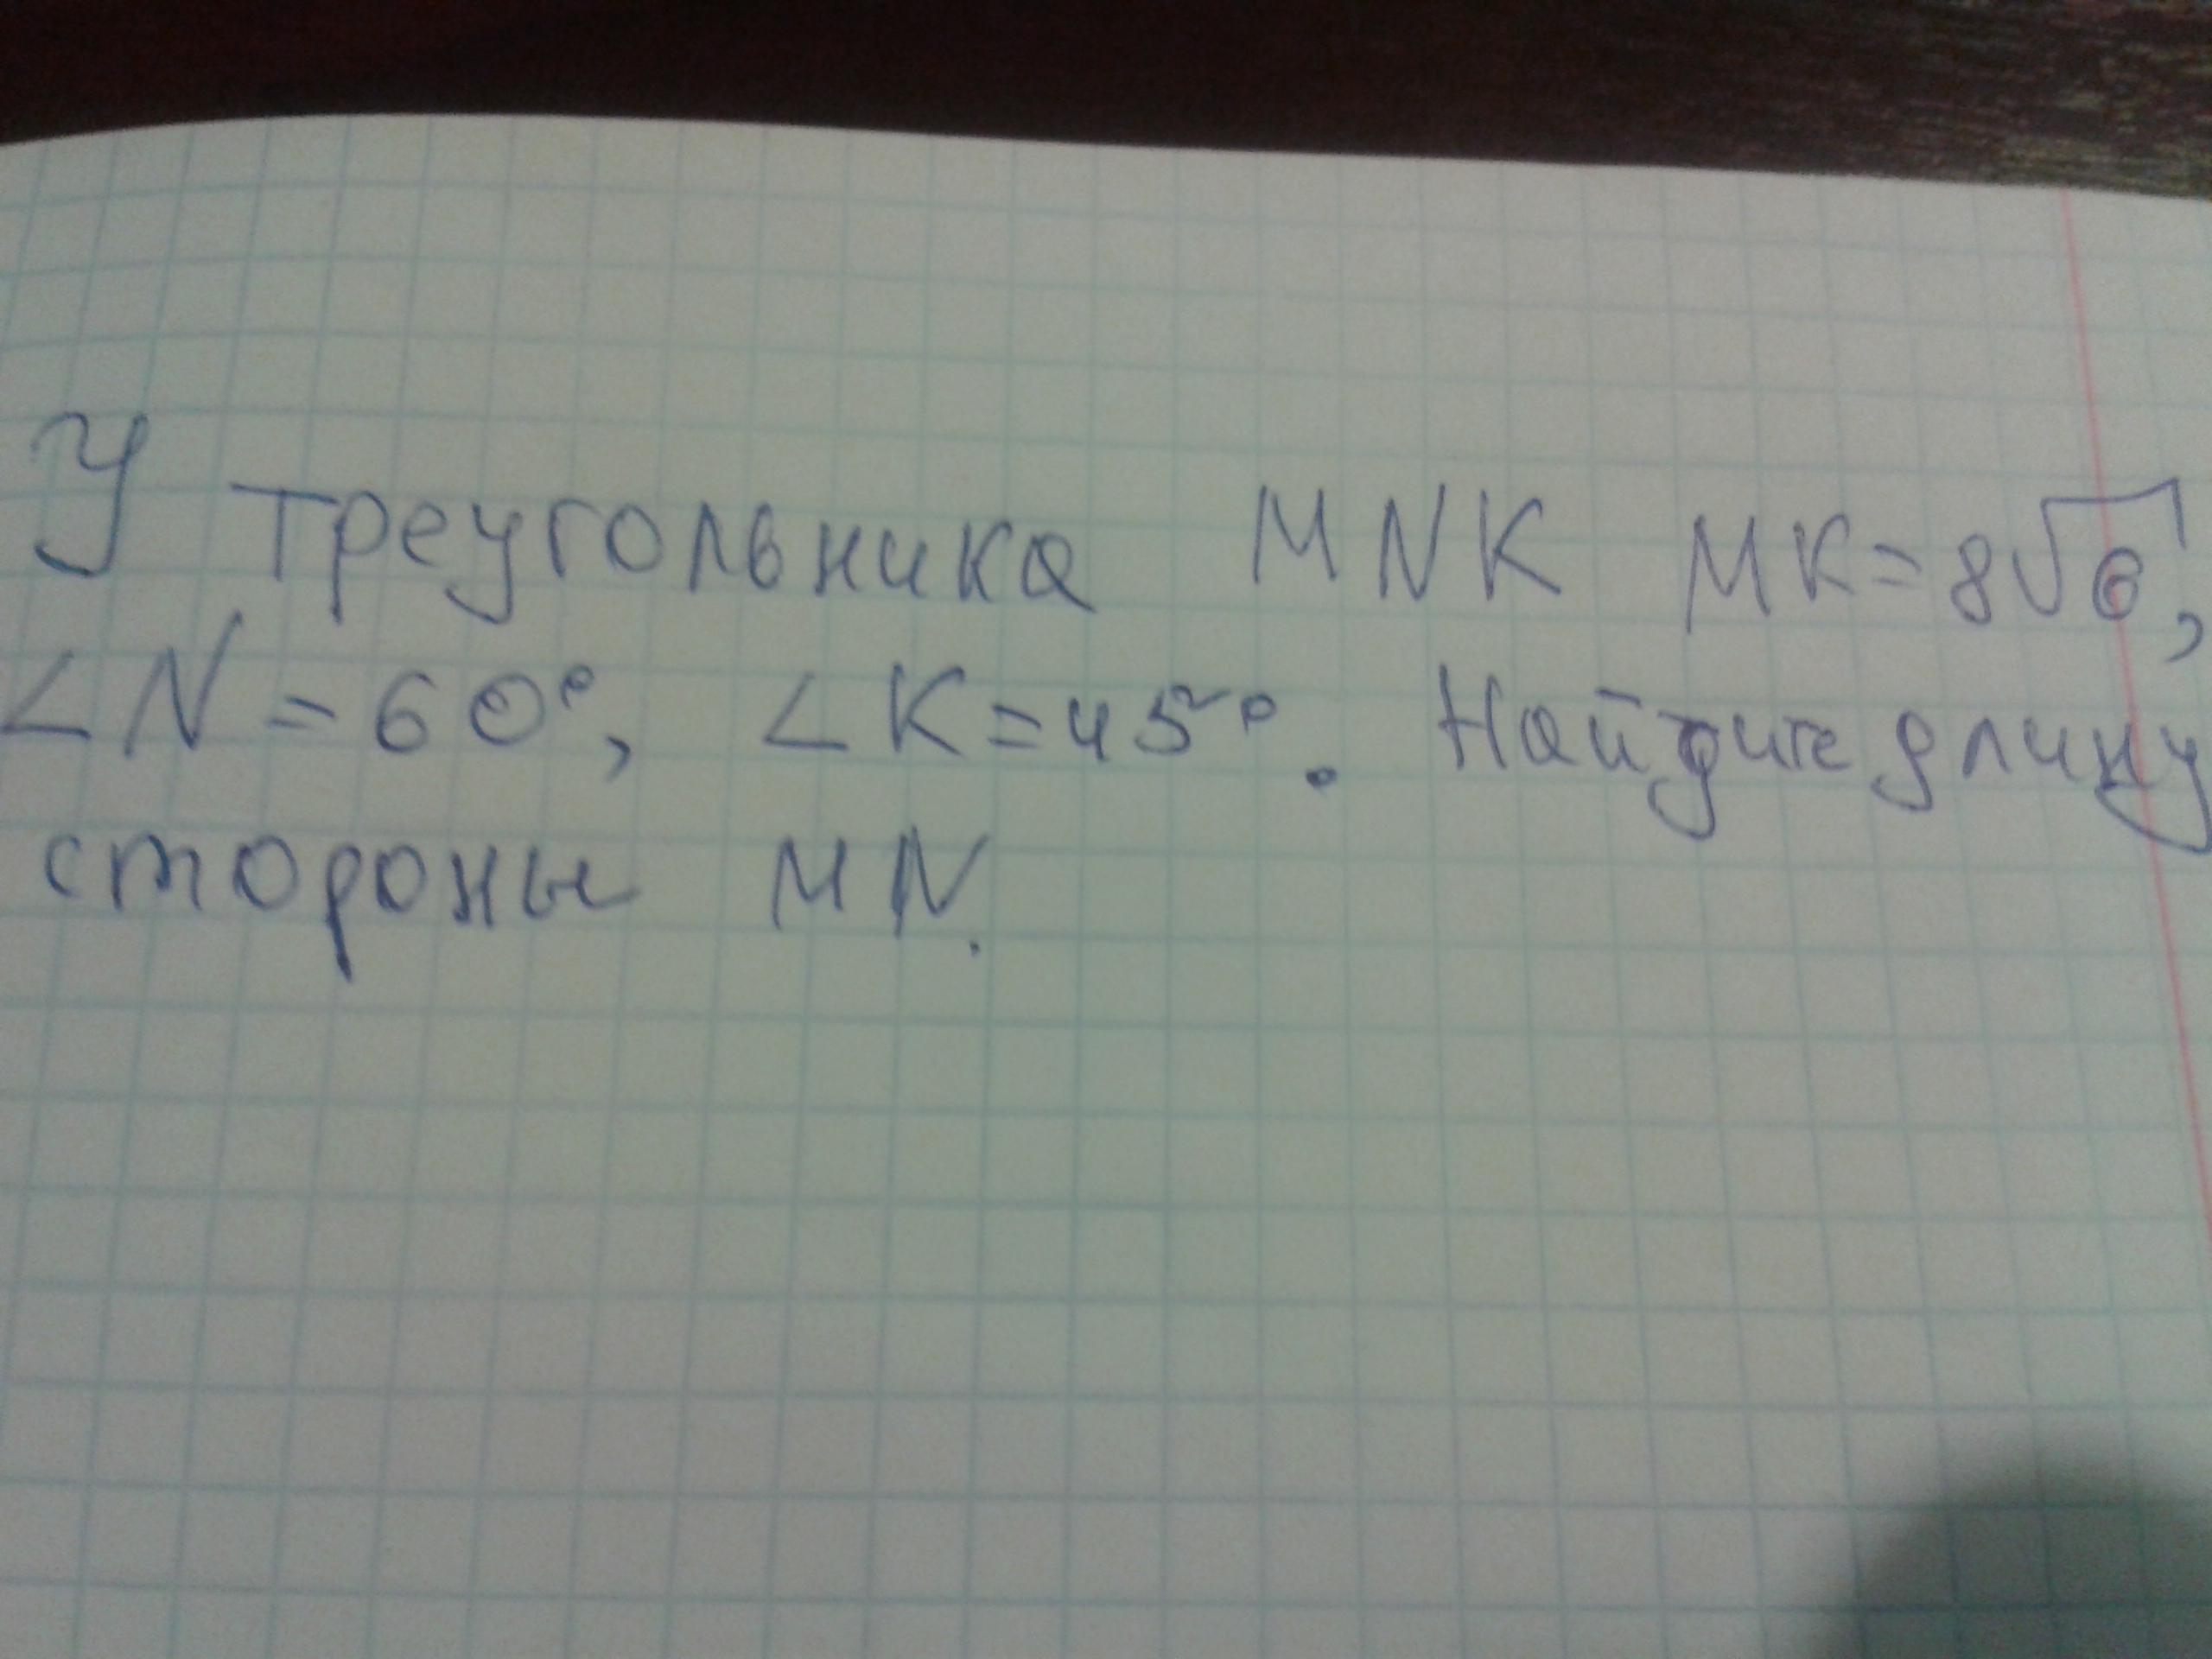 У треугольника MNK MK=8√6,
∠N=60°, ∠K=45°. Найдите длину
стороны MN.